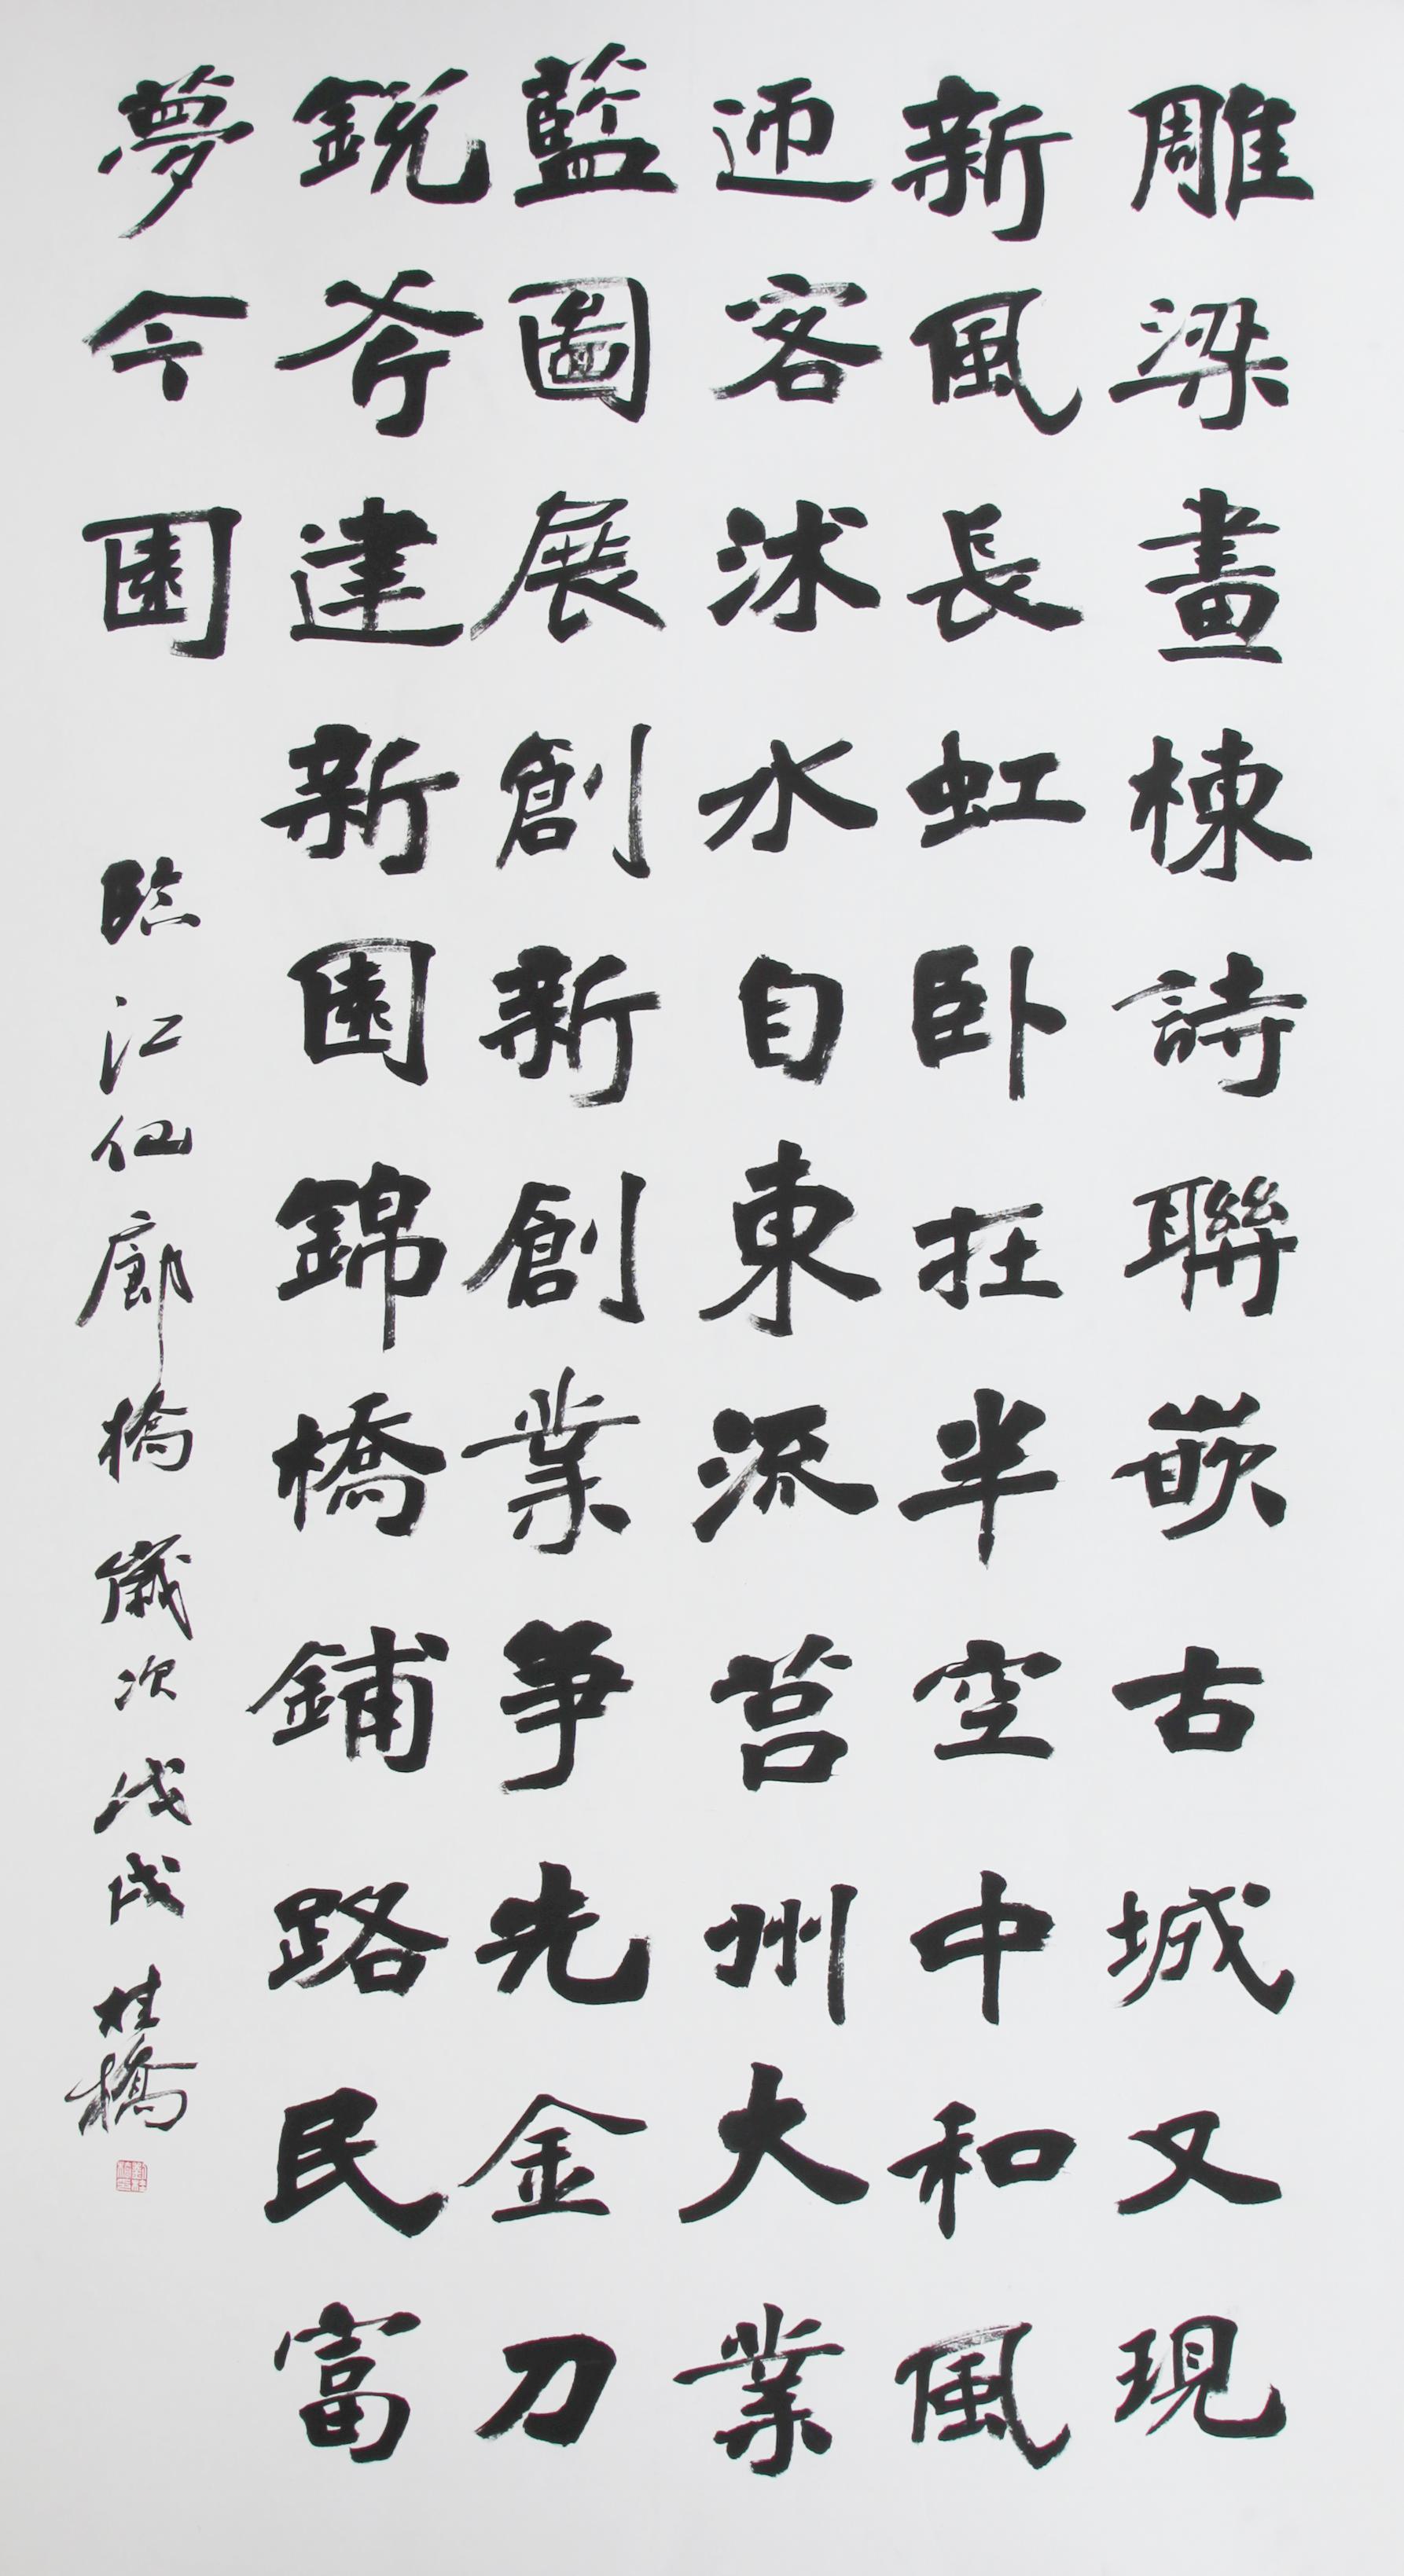 雕梁畫棟詩聯嵌古城又現
新風長虹卧在半空中和風
迎客沭水自東流莒州大業
藍圖展創新創業争先金刀
鋭斧建新園錦橋鋪路民富
夢今園
臨江仙廊橋歲次戊戌桂橋